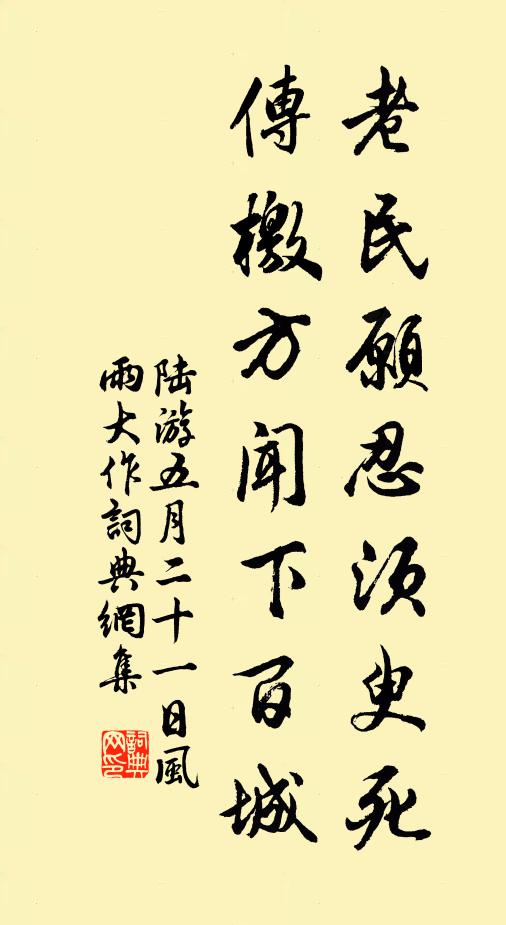 老民願忍須臾死
傳檄方聞下百城
陸游五月二十一日風
雨大作詞典網集
詞典
网印